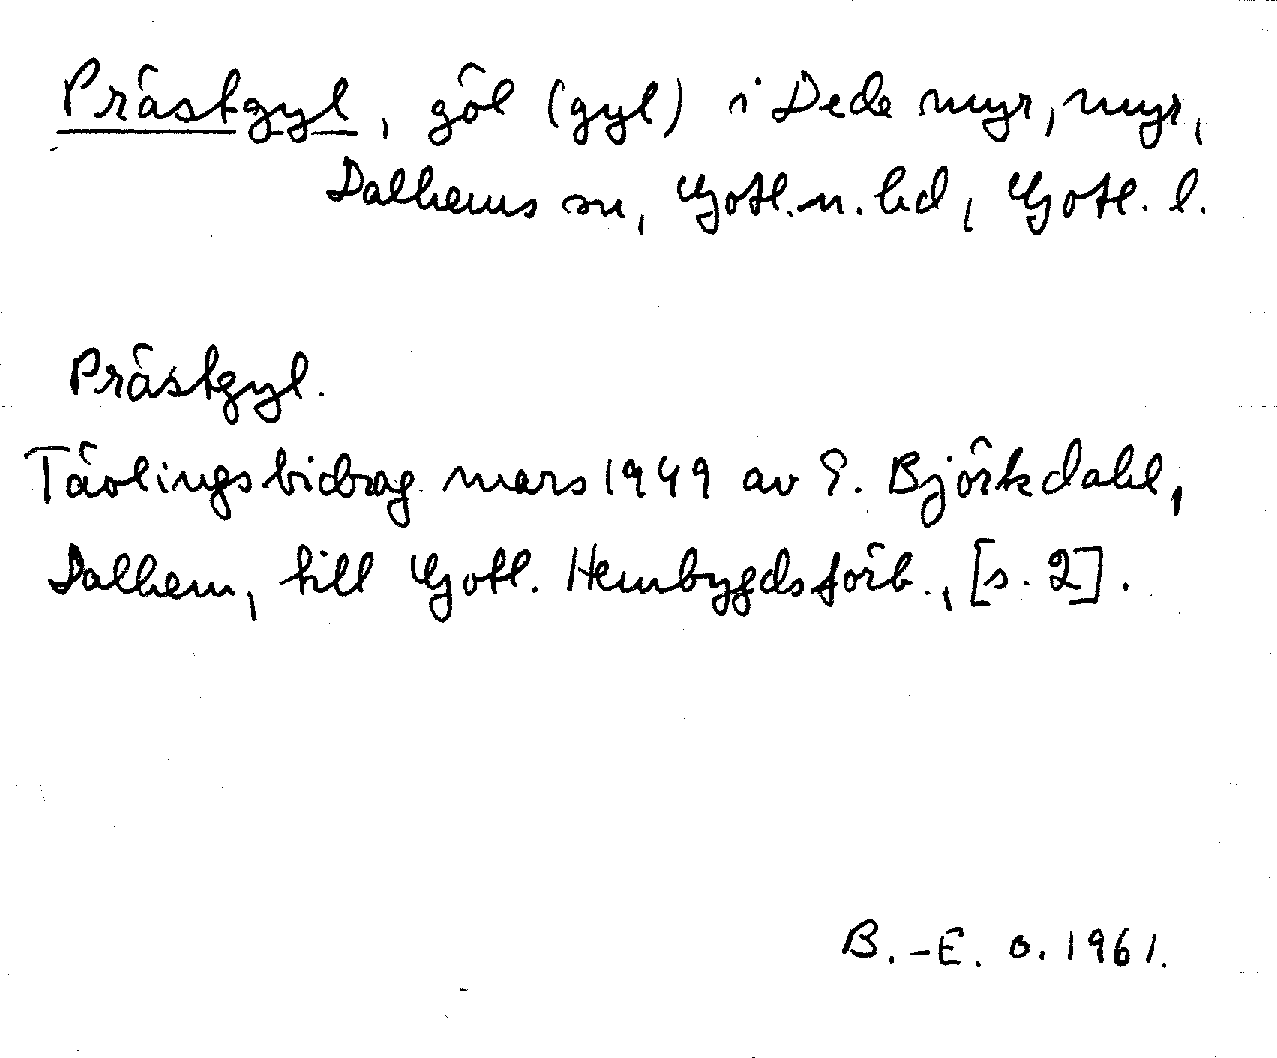 Prästgyl, göl (gyl) i Dede myr, myr,
Dalhems sn, Gotl. n. hd, Gotl. l.
Prästgyl.
Tävlingsbidrag mars 1949 av E. Björkdahl,
Dalhem, till Gotl. Hembygdsförb., [s. 2].
B.-E. O. 1961.